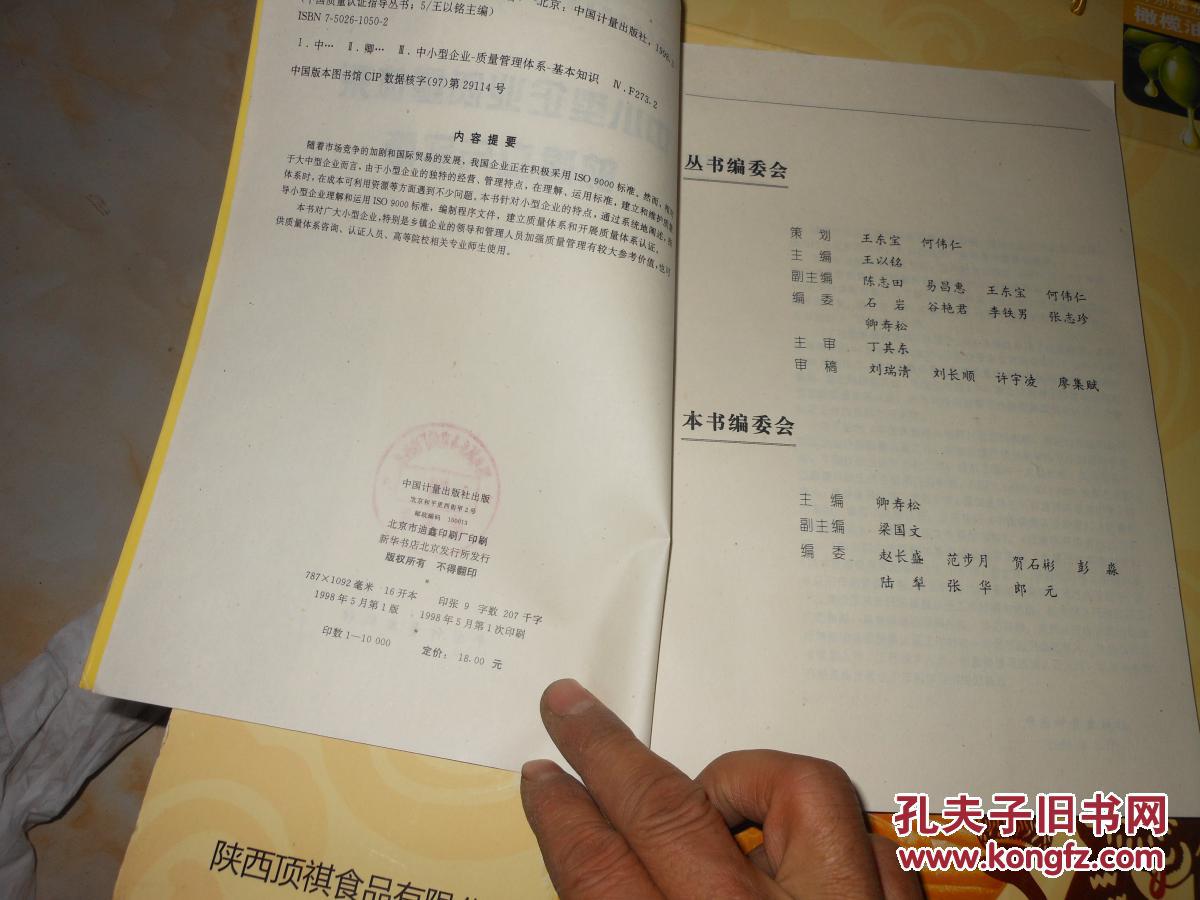 北京：中国计量出版社，1998.
(中国质量认证指导丛书；5/王以铭主编)
ISBN 7-5026-1050-2
Ⅰ.中… Ⅱ.卿… Ⅲ.中小型企业-质量管理体系-基本知识 Ⅳ.F273.2
中国版本图书馆CIP数据核字(97)第29114号
内容提要
随着市场竞争的加剧和国际贸易的发展，我国企业正在积极采用ISO 9000标准。然而，相对
于大中型企业而言，由于小型企业的独特的经营、管理特点，在理解、运用标准，建立和维护质量
体系时，在成本可利用资源等方面遇到不少问题。本书针对小型企业的特点，通过系统地阐述，
导小型企业理解和运用ISO 9000标准，编制程序文件，建立质量体系和开展质量体系认证。
本书对广大小型企业，特别是乡镇企业的领导和管理人员加强质量管理有较大参考价值，也可
供质量体系咨询、认证人员、高等院校相关专业师生使用。
中国计量出版社出版
北京和平里西街甲2号
邮政编码 100013
北京市迪鑫印刷厂印刷
新华书店北京发行所发行
版权所有 不得翻印
*
787×1092毫米 16开本 印张9 字数207千字
1998年5月第1版 1998年5月第1次印刷
*
印数1—10 000 定价：18.00元
丛书编委会
策划 王东宝 何伟仁
主编 王以铭
副主编 陈志田 易昌惠 王东宝 何伟仁
编委 石岩 谷艳君 李铁男 张志珍
卿寿松
主审 丁其东
审稿 刘瑞清 刘长顺 许宇凌 廖集赋
本书编委会
主编 卿寿松
副主编 梁国文
编委 赵长盛 范步月 贺石彬 彭淼
陆犁 张华 郎元
橄榄油
陕西顶祺食品有限
孔夫子旧书网
www.kongfz.com